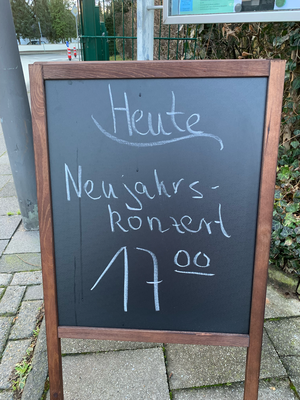 Heute
Neujahrs-
konzert
17 00